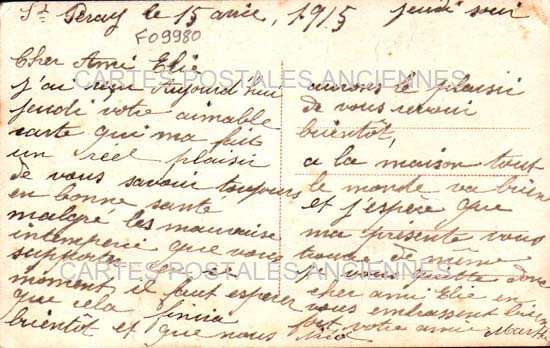 St Péray le 15 avril, 1915 jeudi soir
F09980
Cher Ami Elie
j'ai reçu Aujourd'hui
jeudi votre aimable
carte qui ma fait
un réel plaisir
de vous savoir toujours
en bonne santé
malgré les mauvaise
intemperie que vous
supporter
moment il faut esperer
que cela finira
bientôt et que nous
aurons le plaisir
de vous revoir
bientôt,
a la maison tout
le monde va bien
et j'espère que
ma presente vous
trouve de même
je vous quitte donc
cher ami Elie en
vous embrassent bien
fort votre amie
CARTES POSTALES ANCIENNES
CARTES POSTALES ANCIENNES